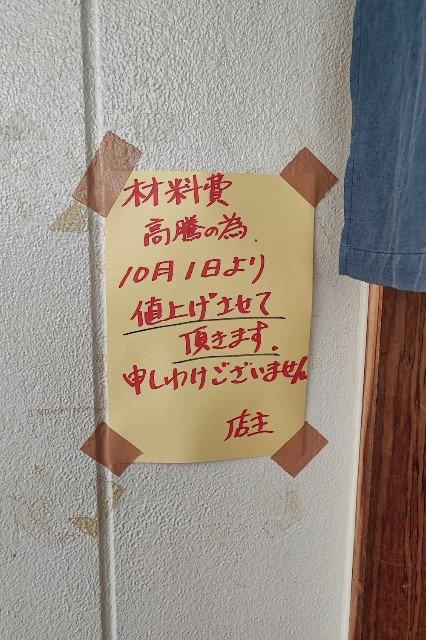 材料費
高騰の為.
10月1日より
値上げさせて
頂きます.
申しわけございません
店主